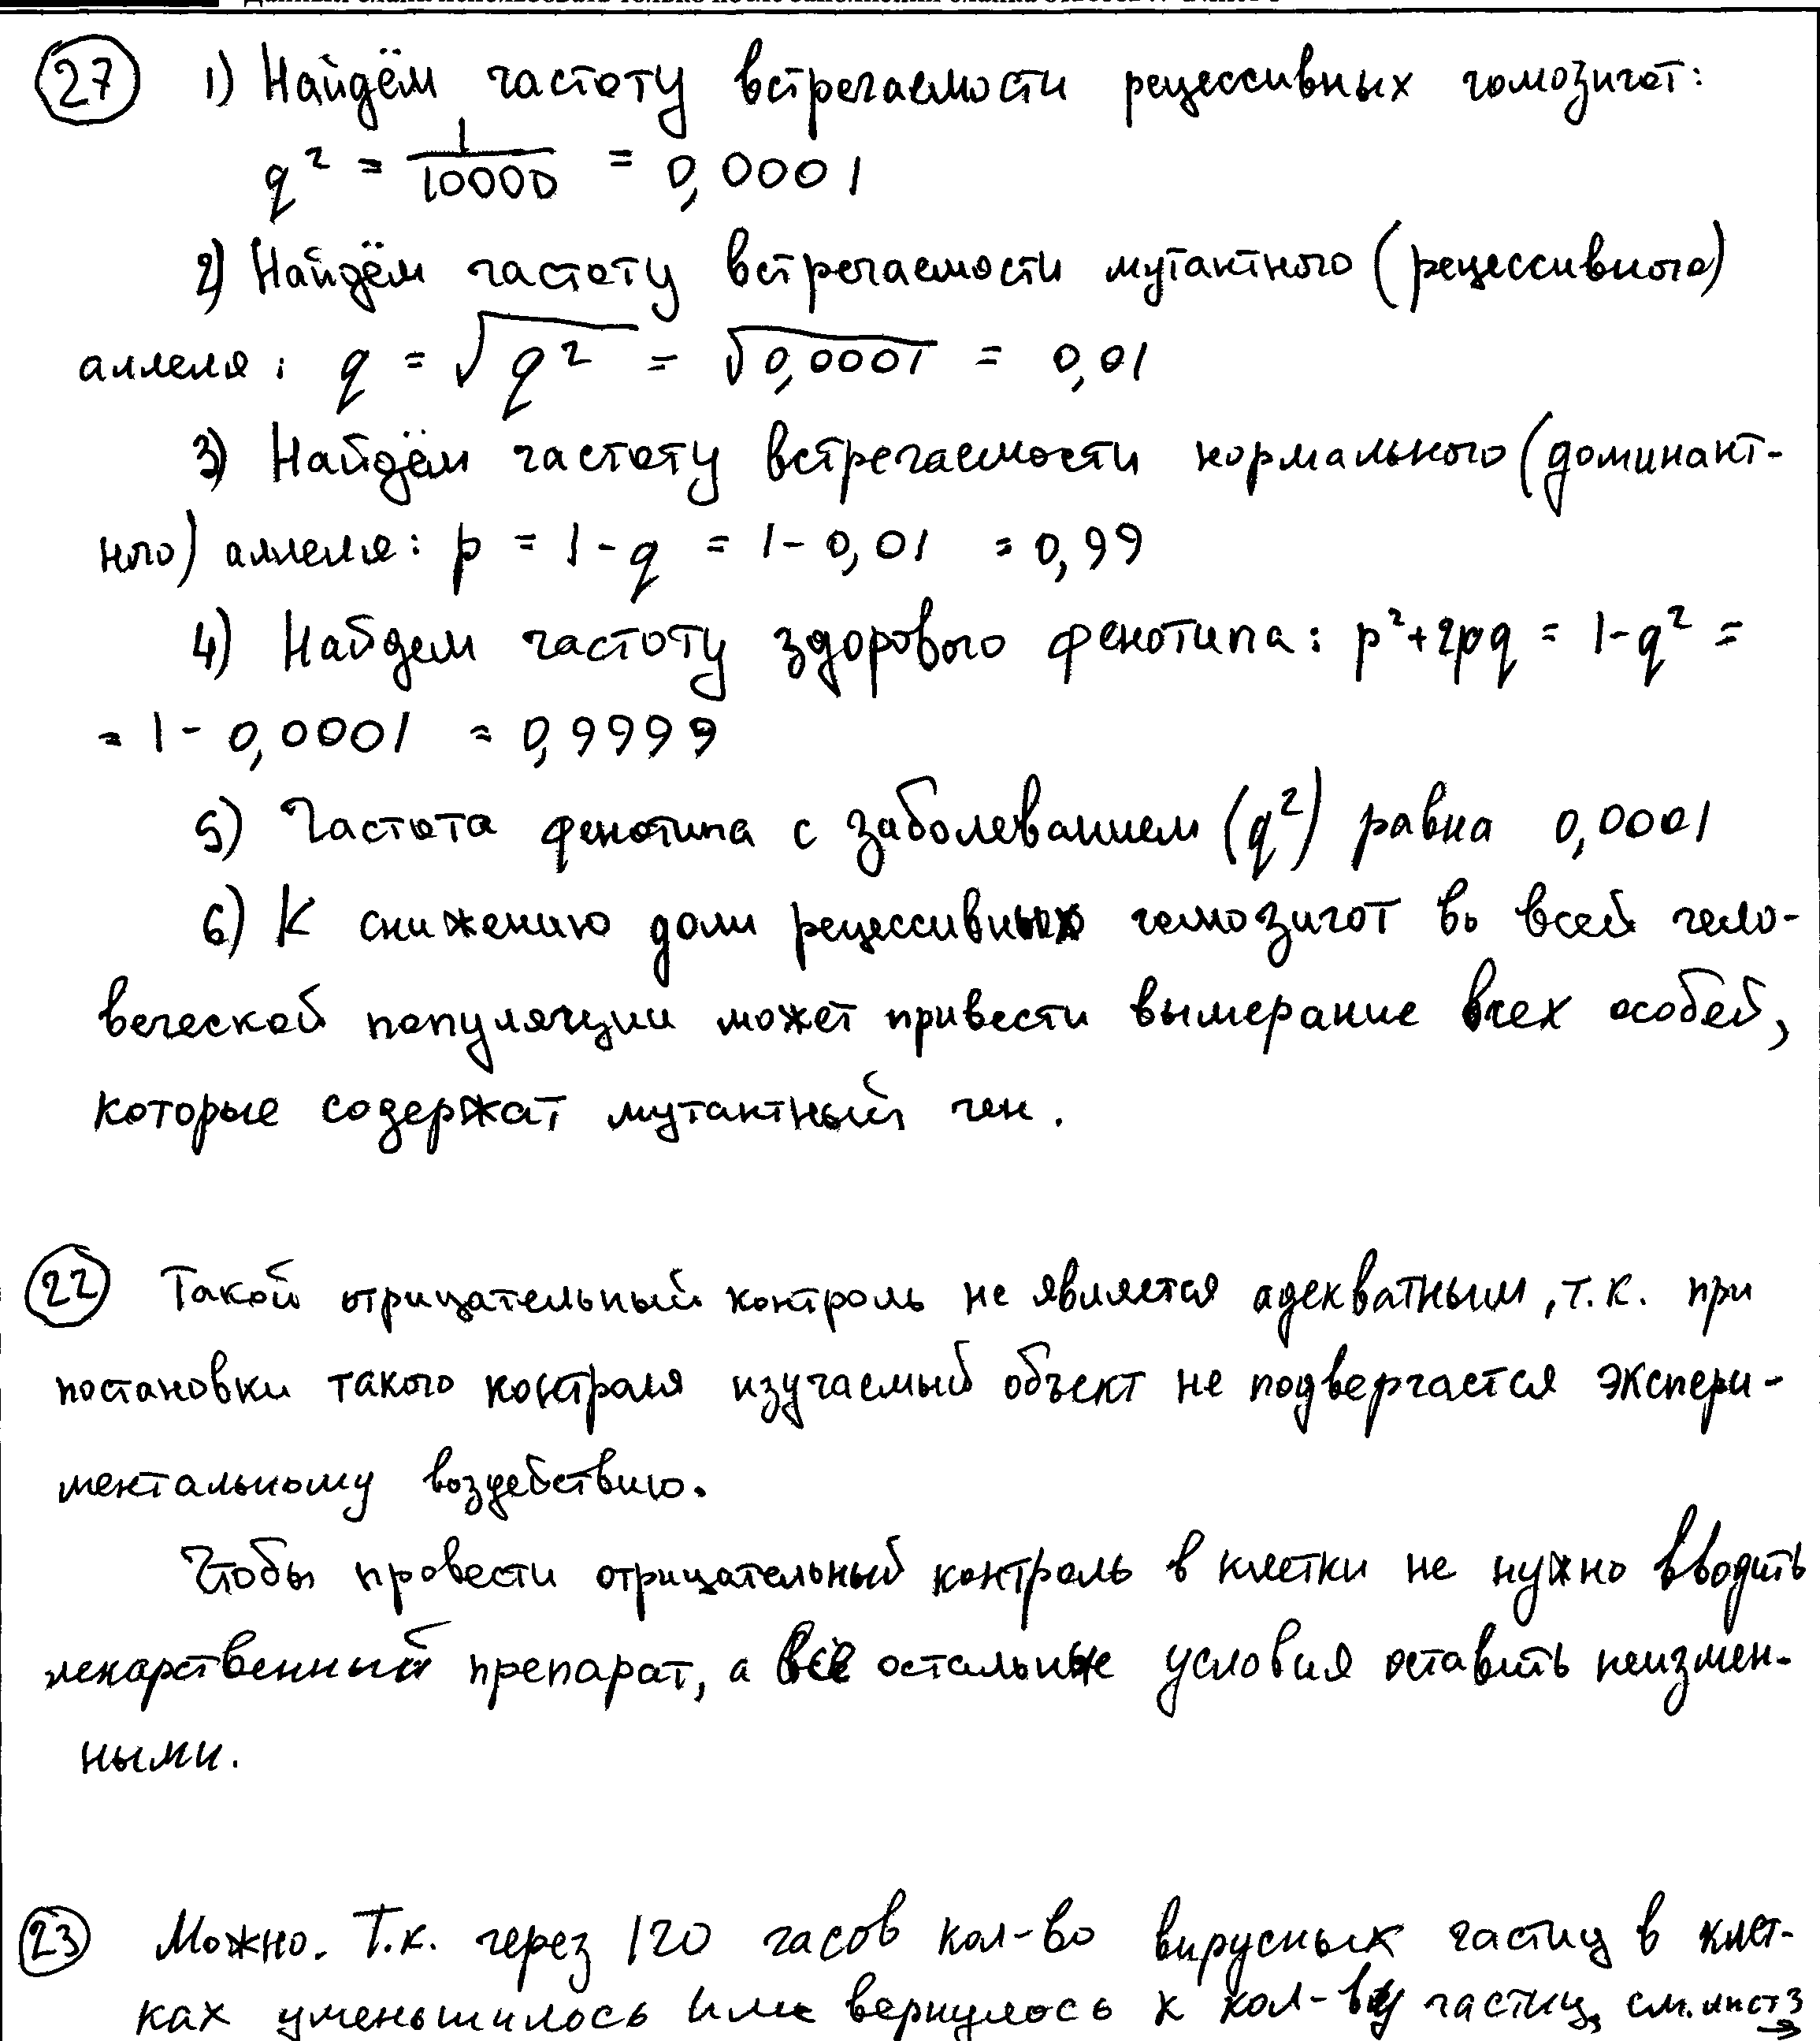 27 1) Найдём частоту встречаемости рецессивных гомозигот:
q² = 1/10000 = 0,0001
2) Найдём частоту встречаемости мутантного (рецессивного)
аллеля: q = √q² = √0,0001 = 0,01
3) Найдём частоту встречаемости нормального (доминант-
ного) аллеля: p = 1 - q = 1 - 0,01 = 0,99
4) Найдем частоту здорового фенотипа: p² + 2pq = 1 - q² =
= 1 - 0,0001 = 0,9999
5) Частота фенотипа с заболеванием (q²) равна 0,0001
6) К снижению доли рецессивных гомозигот во всей чело-
веческой популяции может привести вымерание всех особей,
которые содержат мутантный ген.
22 Такой отрицательный контроль не является адекватным, т.к. при
постановки такого контроля изучаемый объект не подвергается экспери-
ментальному воздействию.
Чтобы провести отрицательный контроль в клетки не нужно вводить
лекарственный препарат, а все остальные условия оставить неизмен-
ными.
23 Можно. Т.к. через 120 часов кол-во вирусных частиц в клет-
ках уменьшилось или вернулось к кол-ву частиц, см. лист 3 →